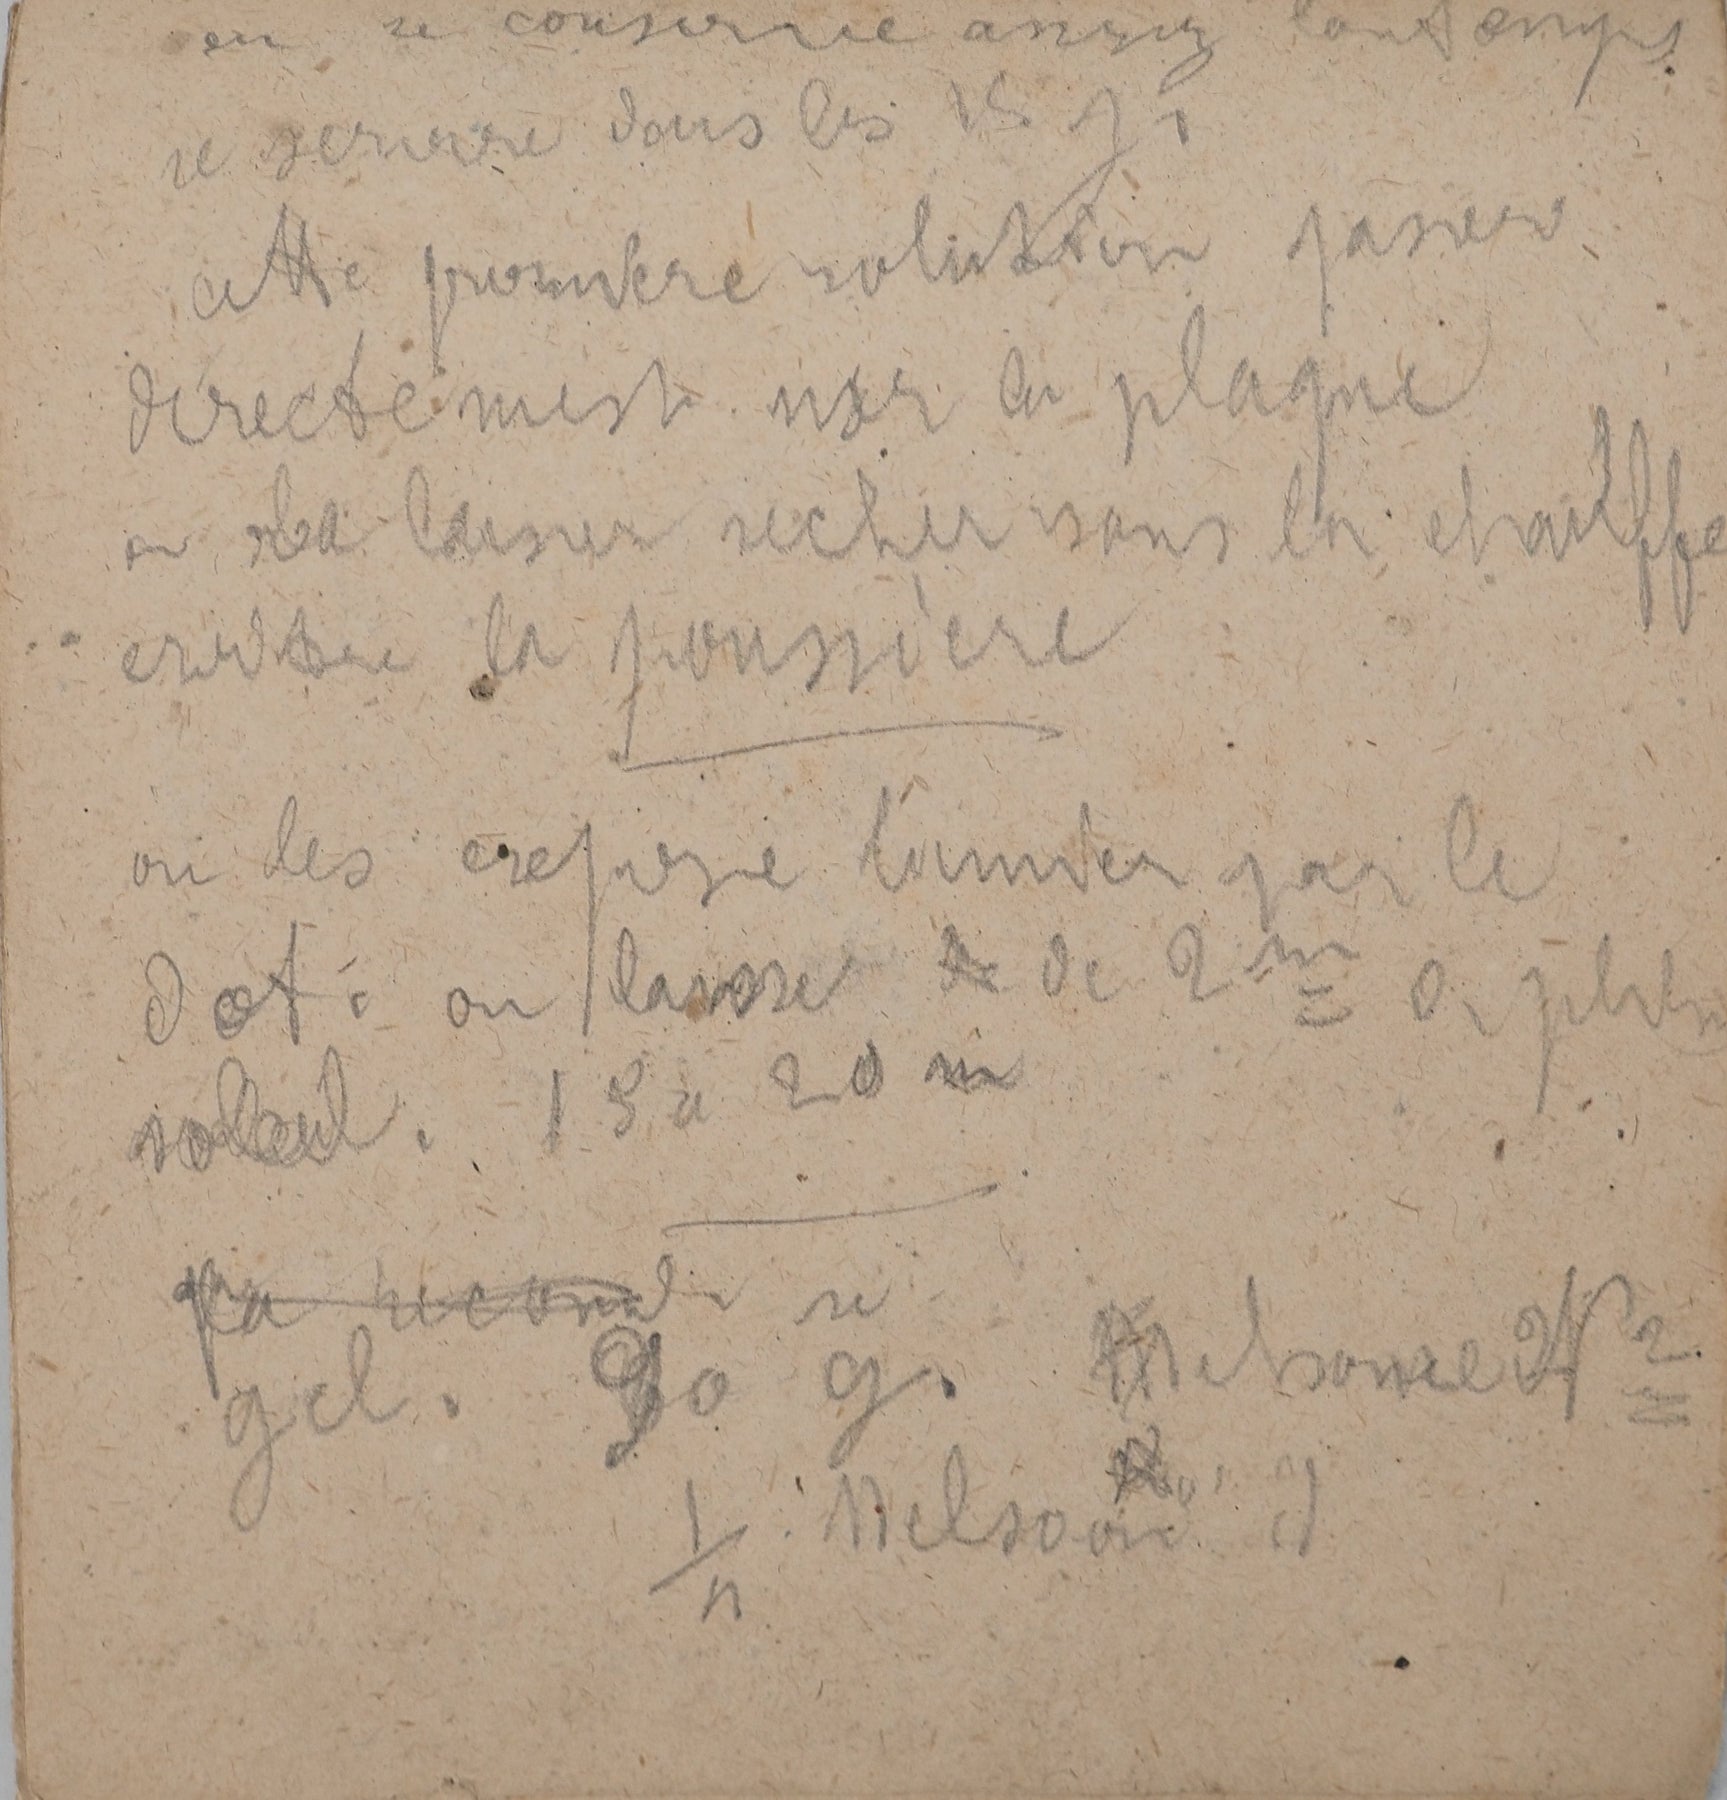 on se conserve assez lontemps
se servire dans les 15 j.
cette premiere solution passer
directement sur la plaque
on la laisser secher sans la chauffe
eviter la poussière
on les expose lumier par le
doté on laisse de 2 m de plein
soleil. 15 a 20 m
la second se
gel. 30 g. Nelsonne N 2
1/n Nelsone